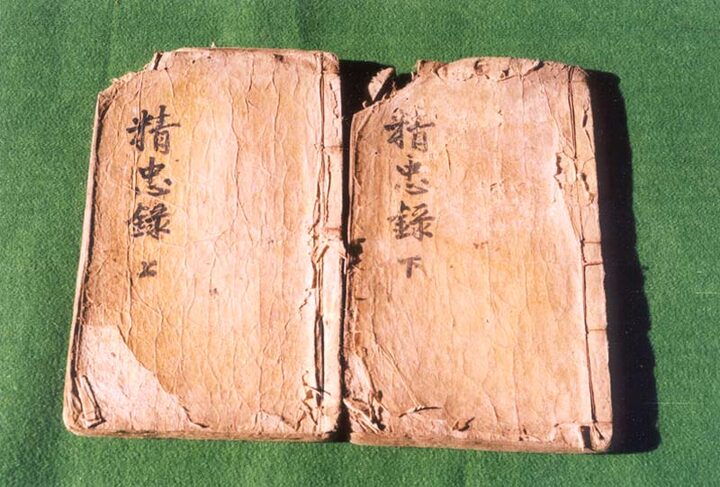 精忠錄 上
精忠錄 下